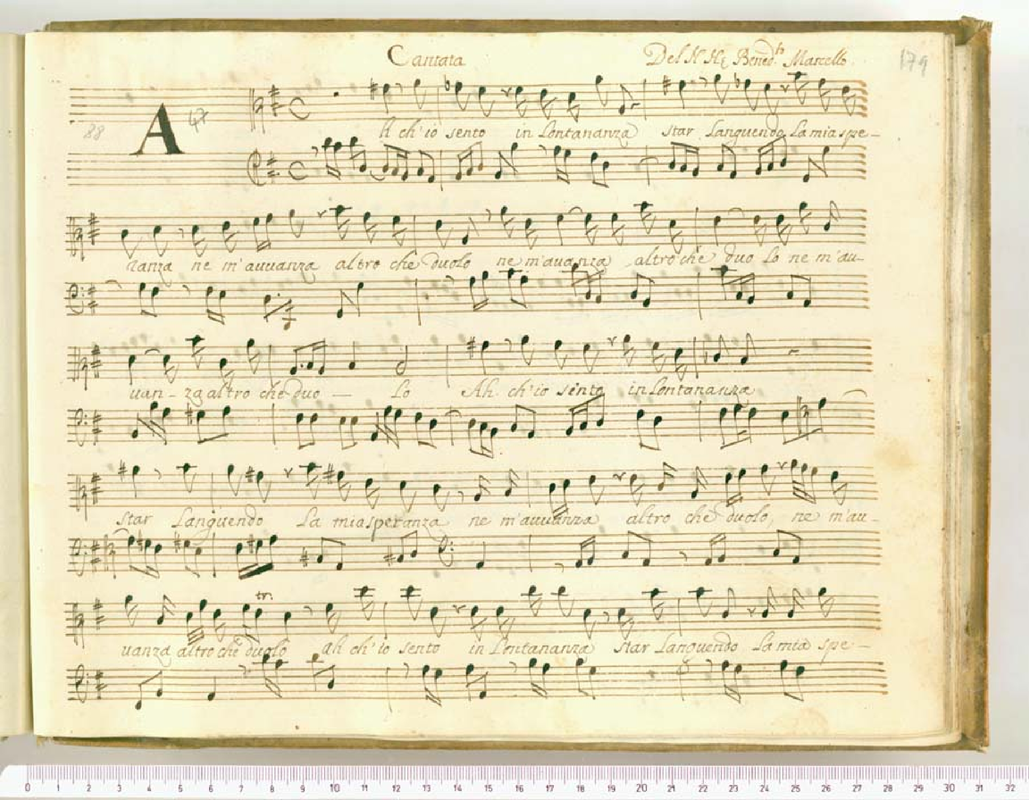 Cantata Del N. H. Bened.to Marcello 179
88 A 47
h ch'io sento in Lontananza star Languendo La mia spe-
ranza ne m'avvanza altro che duolo ne m'avanza altro che duo lo ne m'au-
uan-za altro che duo — Lo Ah ch'io sento in Lontananza
star Languendo La mia speranza ne m'auuanza altro che duolo, ne m'au-
tr.
uanza altro che duolo ah ch'io sento in Lontananza star Languendo La mia spe-
0 1 2 3 4 5 6 7 8 9 10 11 12 13 14 15 16 17 18 19 20 21 22 23 24 25 26 27 28 29 30 31 32